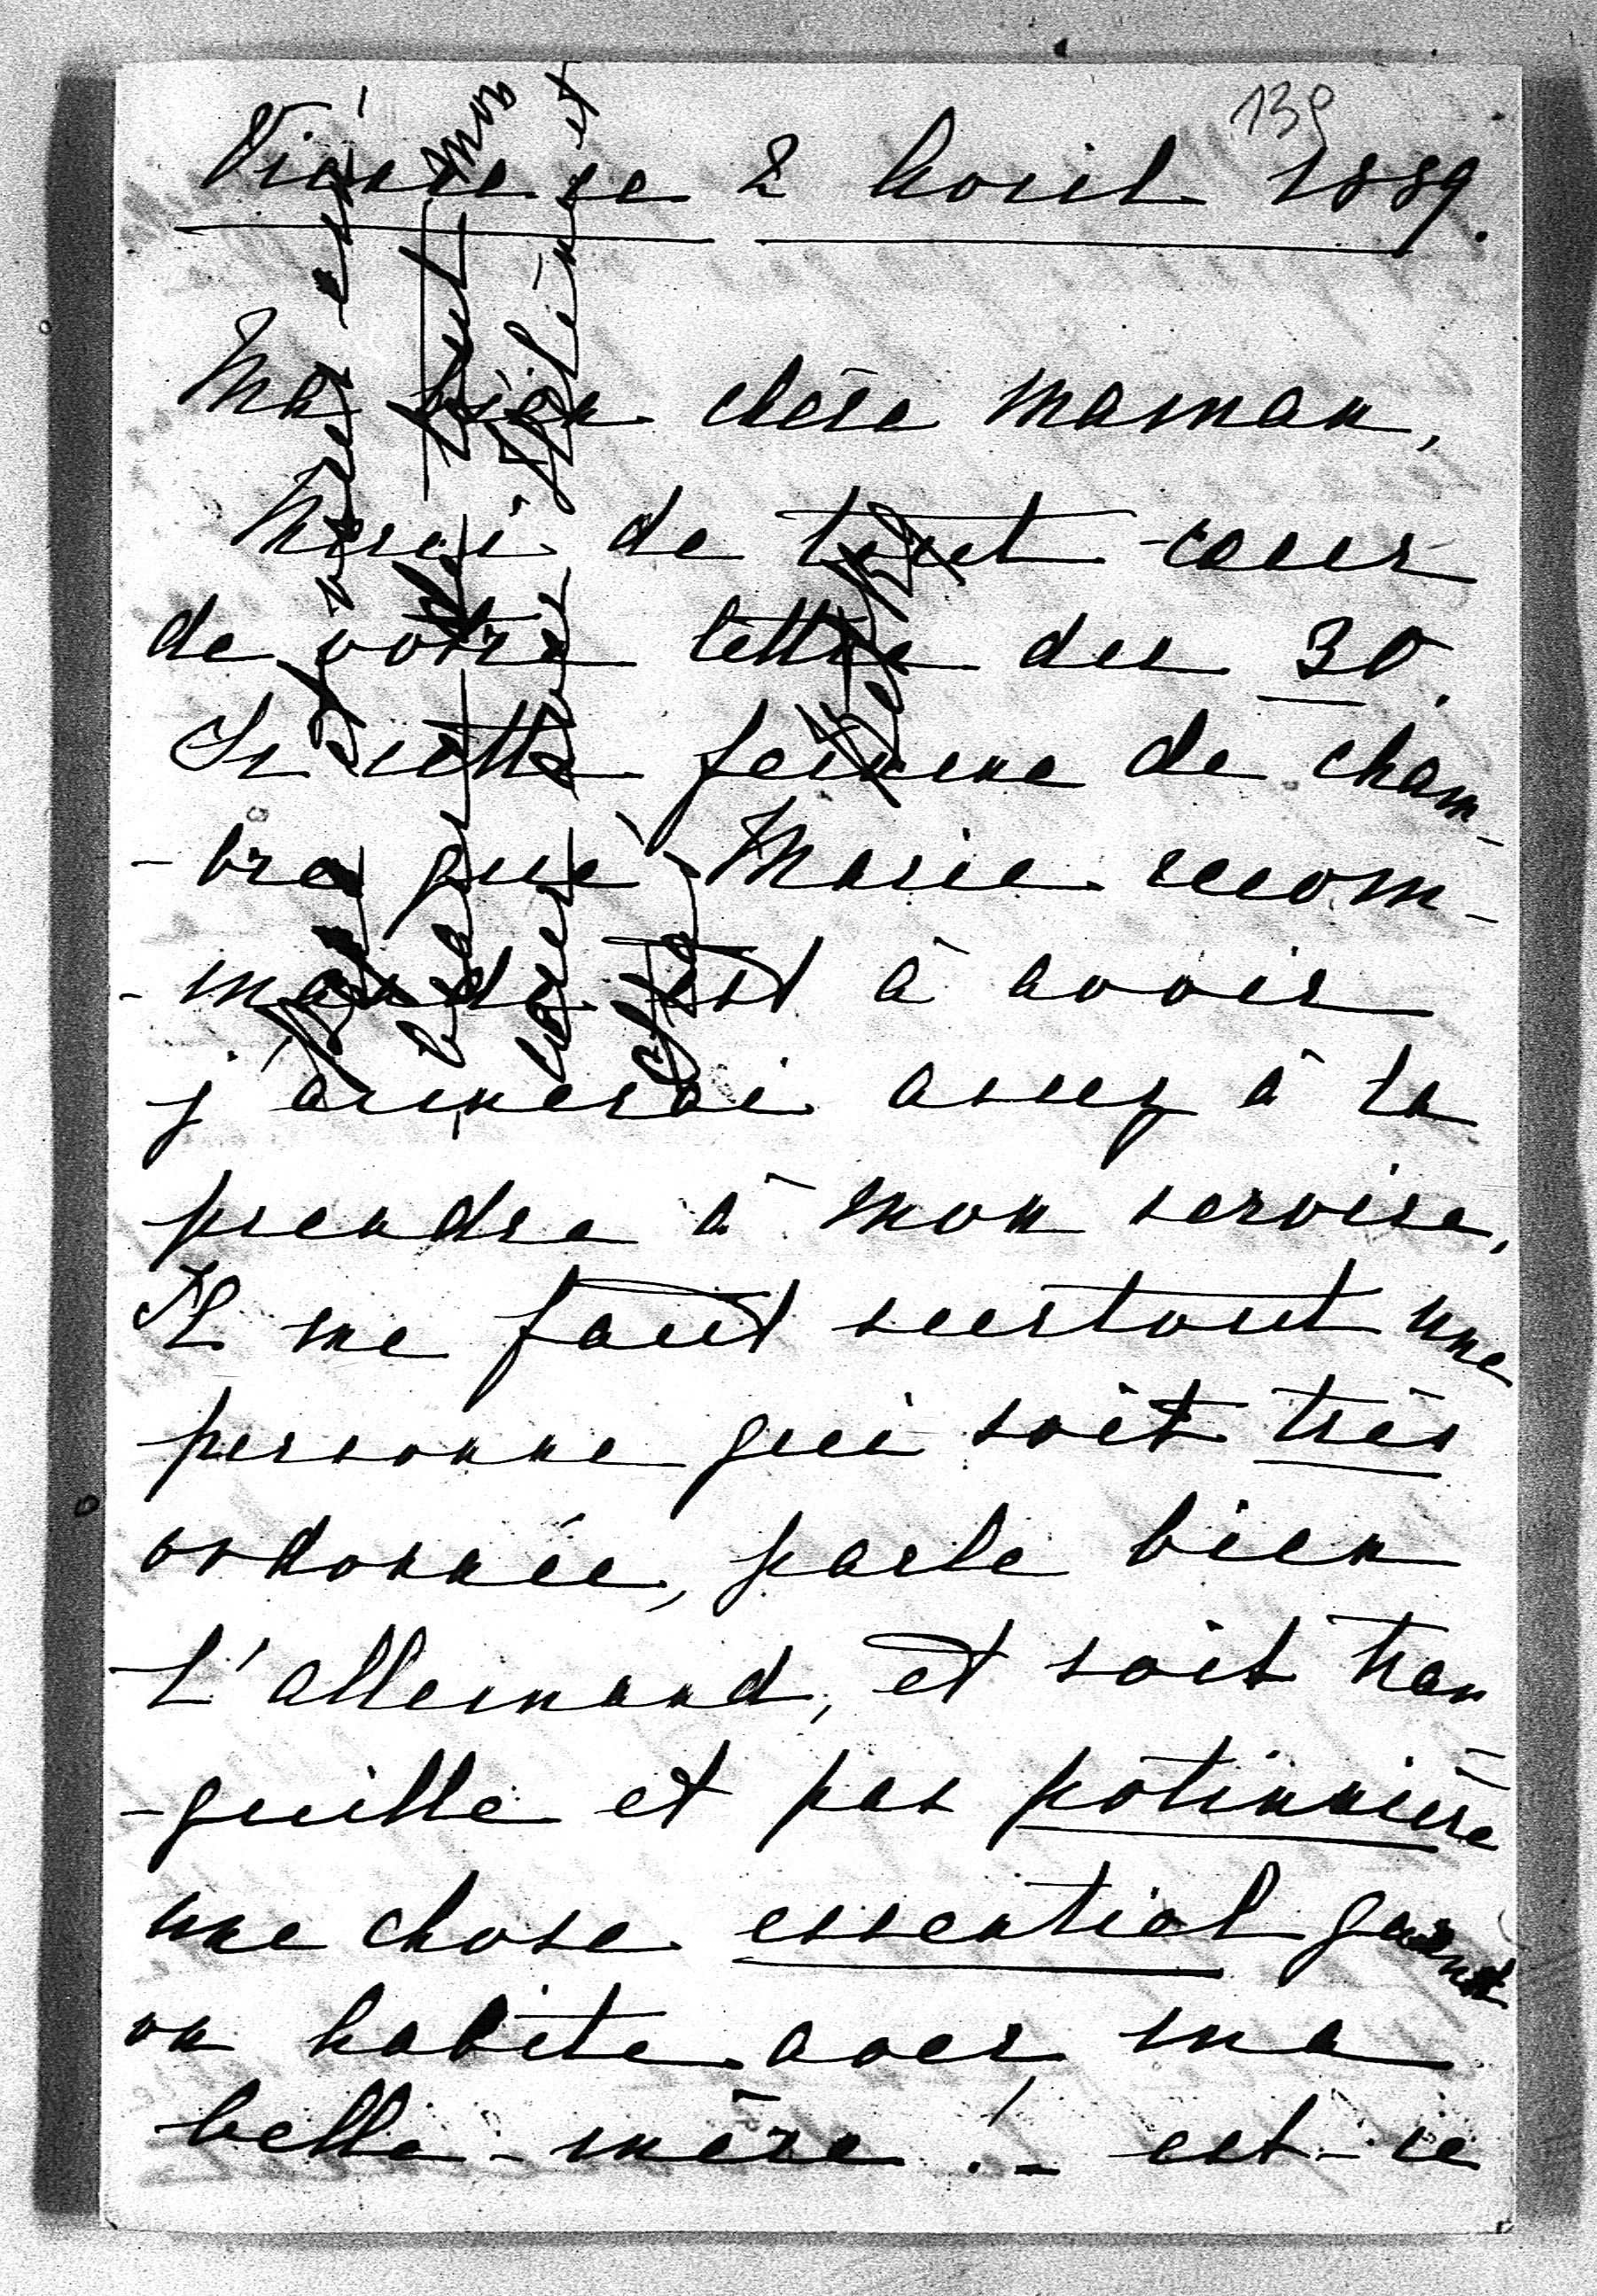 139
Vienne ce 2 Avril 1889.
Ma bien chère maman,
Merci de tout cœur
de votre lettre du 30.
Si cette femme de cham-
-bre que Marie recom-
-mande est à avoir
j'aimerai assez à la
prendre à mon servise,
Il me faut surtout une
personne qui soit très
ordonnée, parle bien
l'allemand, et soit tran
-quille et pas potinnière
une chose essentiel quand
on habite avec ma
belle-mère! - est-ce